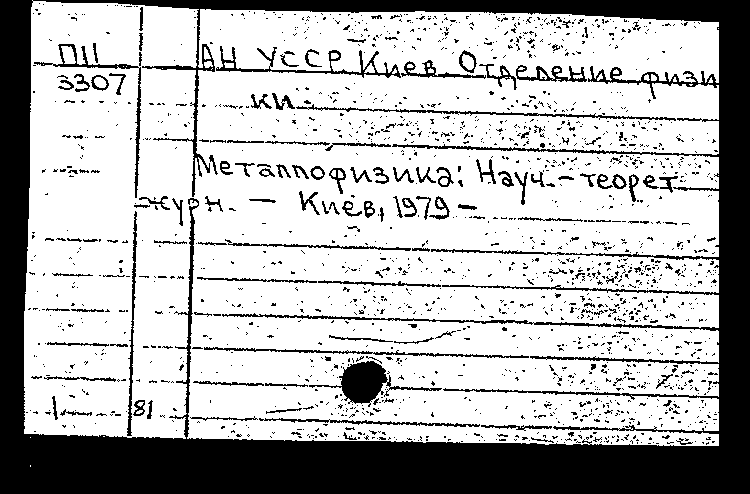 П11 АН УССР. Киев. Отделение физи
3307 ки.
Металлофизика: Науч.-теорет.
журн. — Киев, 1979 —
1 81